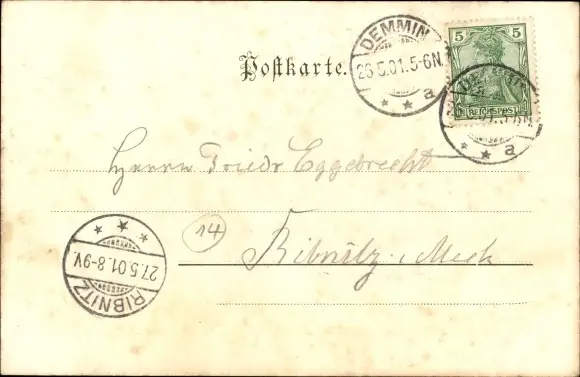 Postkarte.
DEMMIN
26.5.01.5-6N.
* * a
5 5
REICHSPOST
* * a
Herrn Friedr Eggebrecht
14
Ribnitz i. Meck
RIBNITZ
27.5.01.8-9V.
* * *